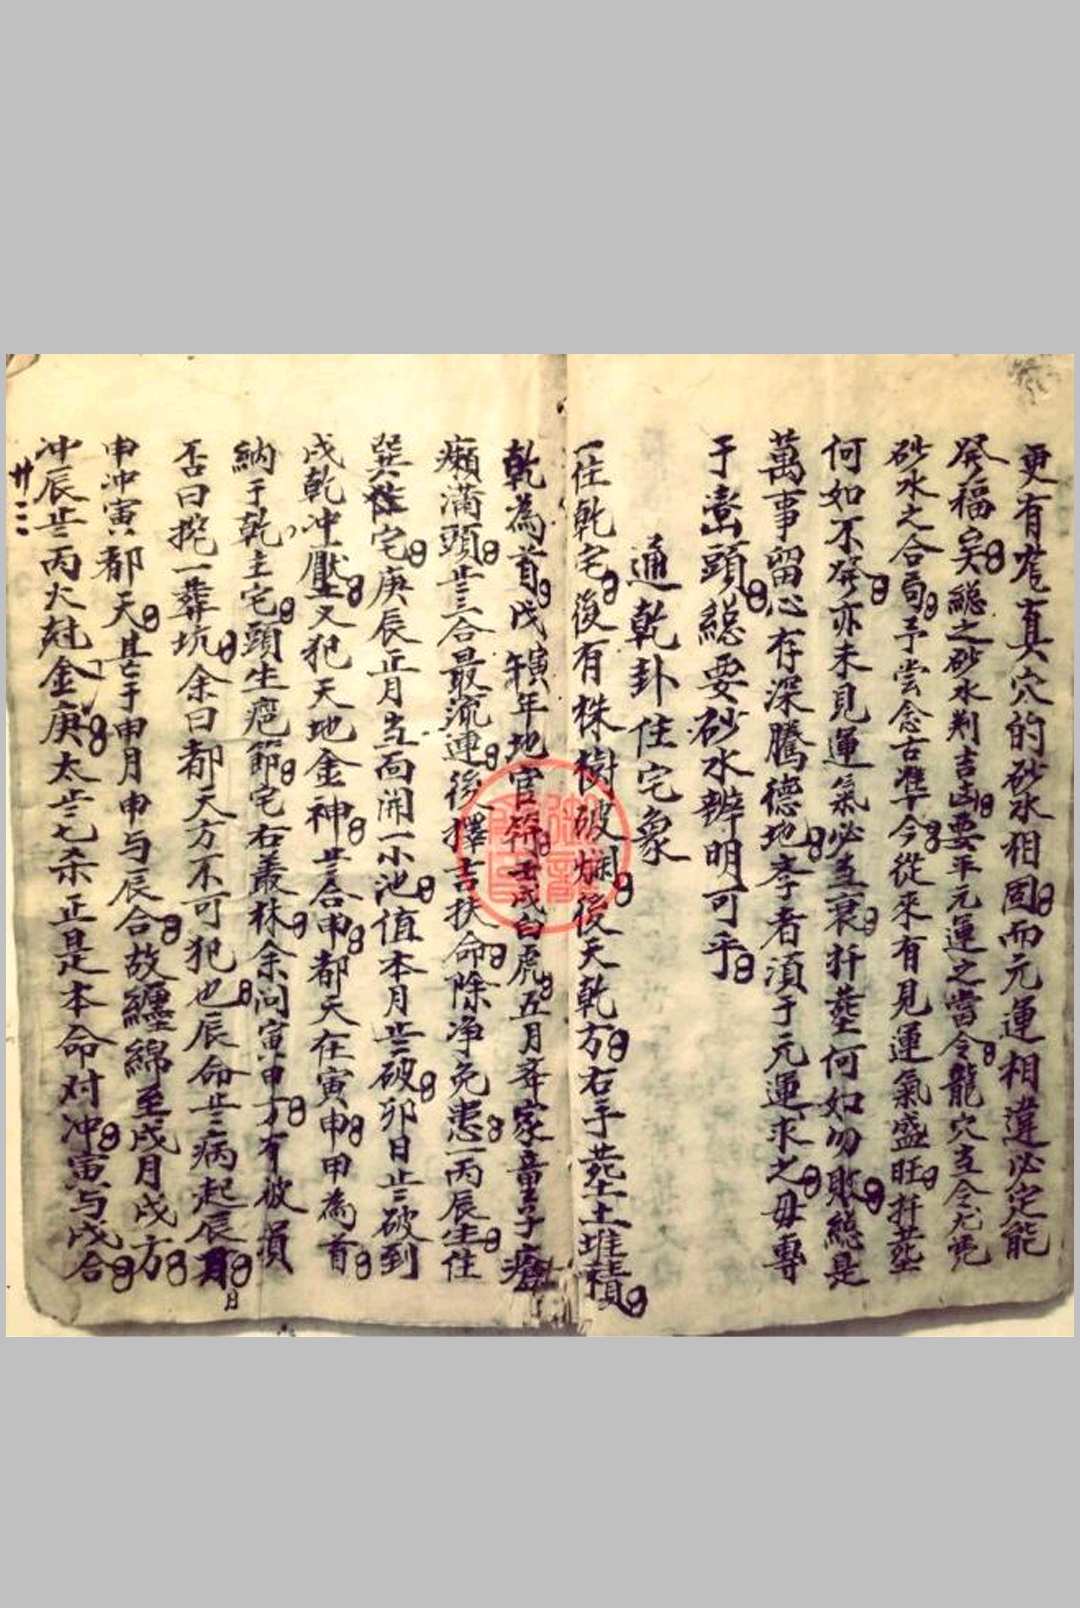 更有嵬真穴的砂水相固而元運相違必定能
發福矣總之砂水判吉凶要平元運之當令龍穴立令尤凭
砂水之合局予嘗念古準今從來有見運氣盛旺扦塟
何如不發亦未見運氣必立衰扦塟何如勿敗總是
萬事留心存深騰德地李者須于元運求之毋專
于巒頭總要砂水辨明可乎
通乾卦住宅象
一住乾宅復有株樹破爛後天乾方右手塟土堆積
乾為首戊寅午年地官符壬戌白虎五月奉家童子瘡
癩滿頭三合最流連後擇吉扶命除净免患一丙辰生住
巽住宅庚辰正月立向開一小池值本月破卯日破到
戌乾冲壓又犯天地金神三合申都天在寅申甲為首
納于乾主宅頭生疱節宅右叢林余问寅申方有被損
否曰挖一葬坑余曰都天方不可犯也辰命病起辰月日
申冲寅都天其亡于申月申与辰合故纏綿至戌月戌方
冲辰丙火尅金庚太七杀正是本命对冲寅与戌合
廿三